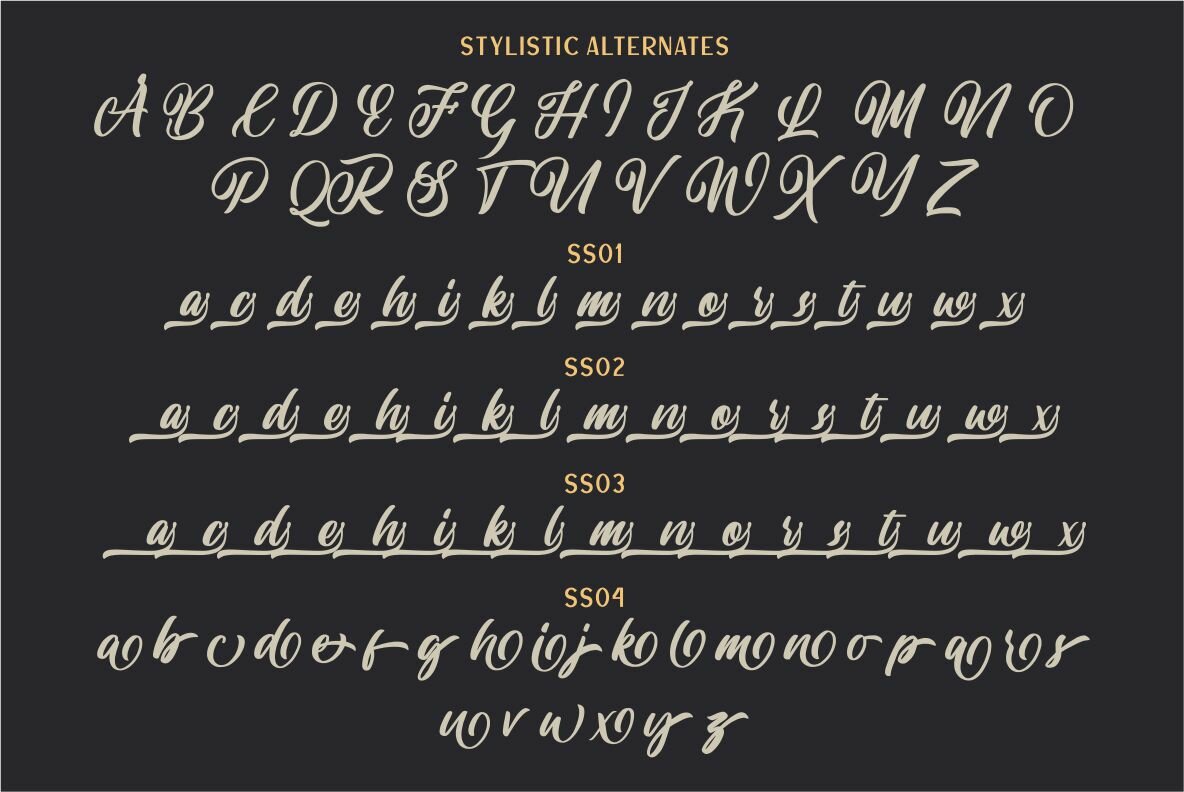 STYLISTIC ALTERNATES
A B C D E F G H I J K L M N O
P Q R S T U V W X Y Z
SS01
a c d e h i k l m n o r s t u w x
SS02
a c d e h i k l m n o r s t u w x
SS03
a c d e h i k l m n o r s t u w x
SS04
a b c d e f g h i j k l m n o p q r s
u v w x y z